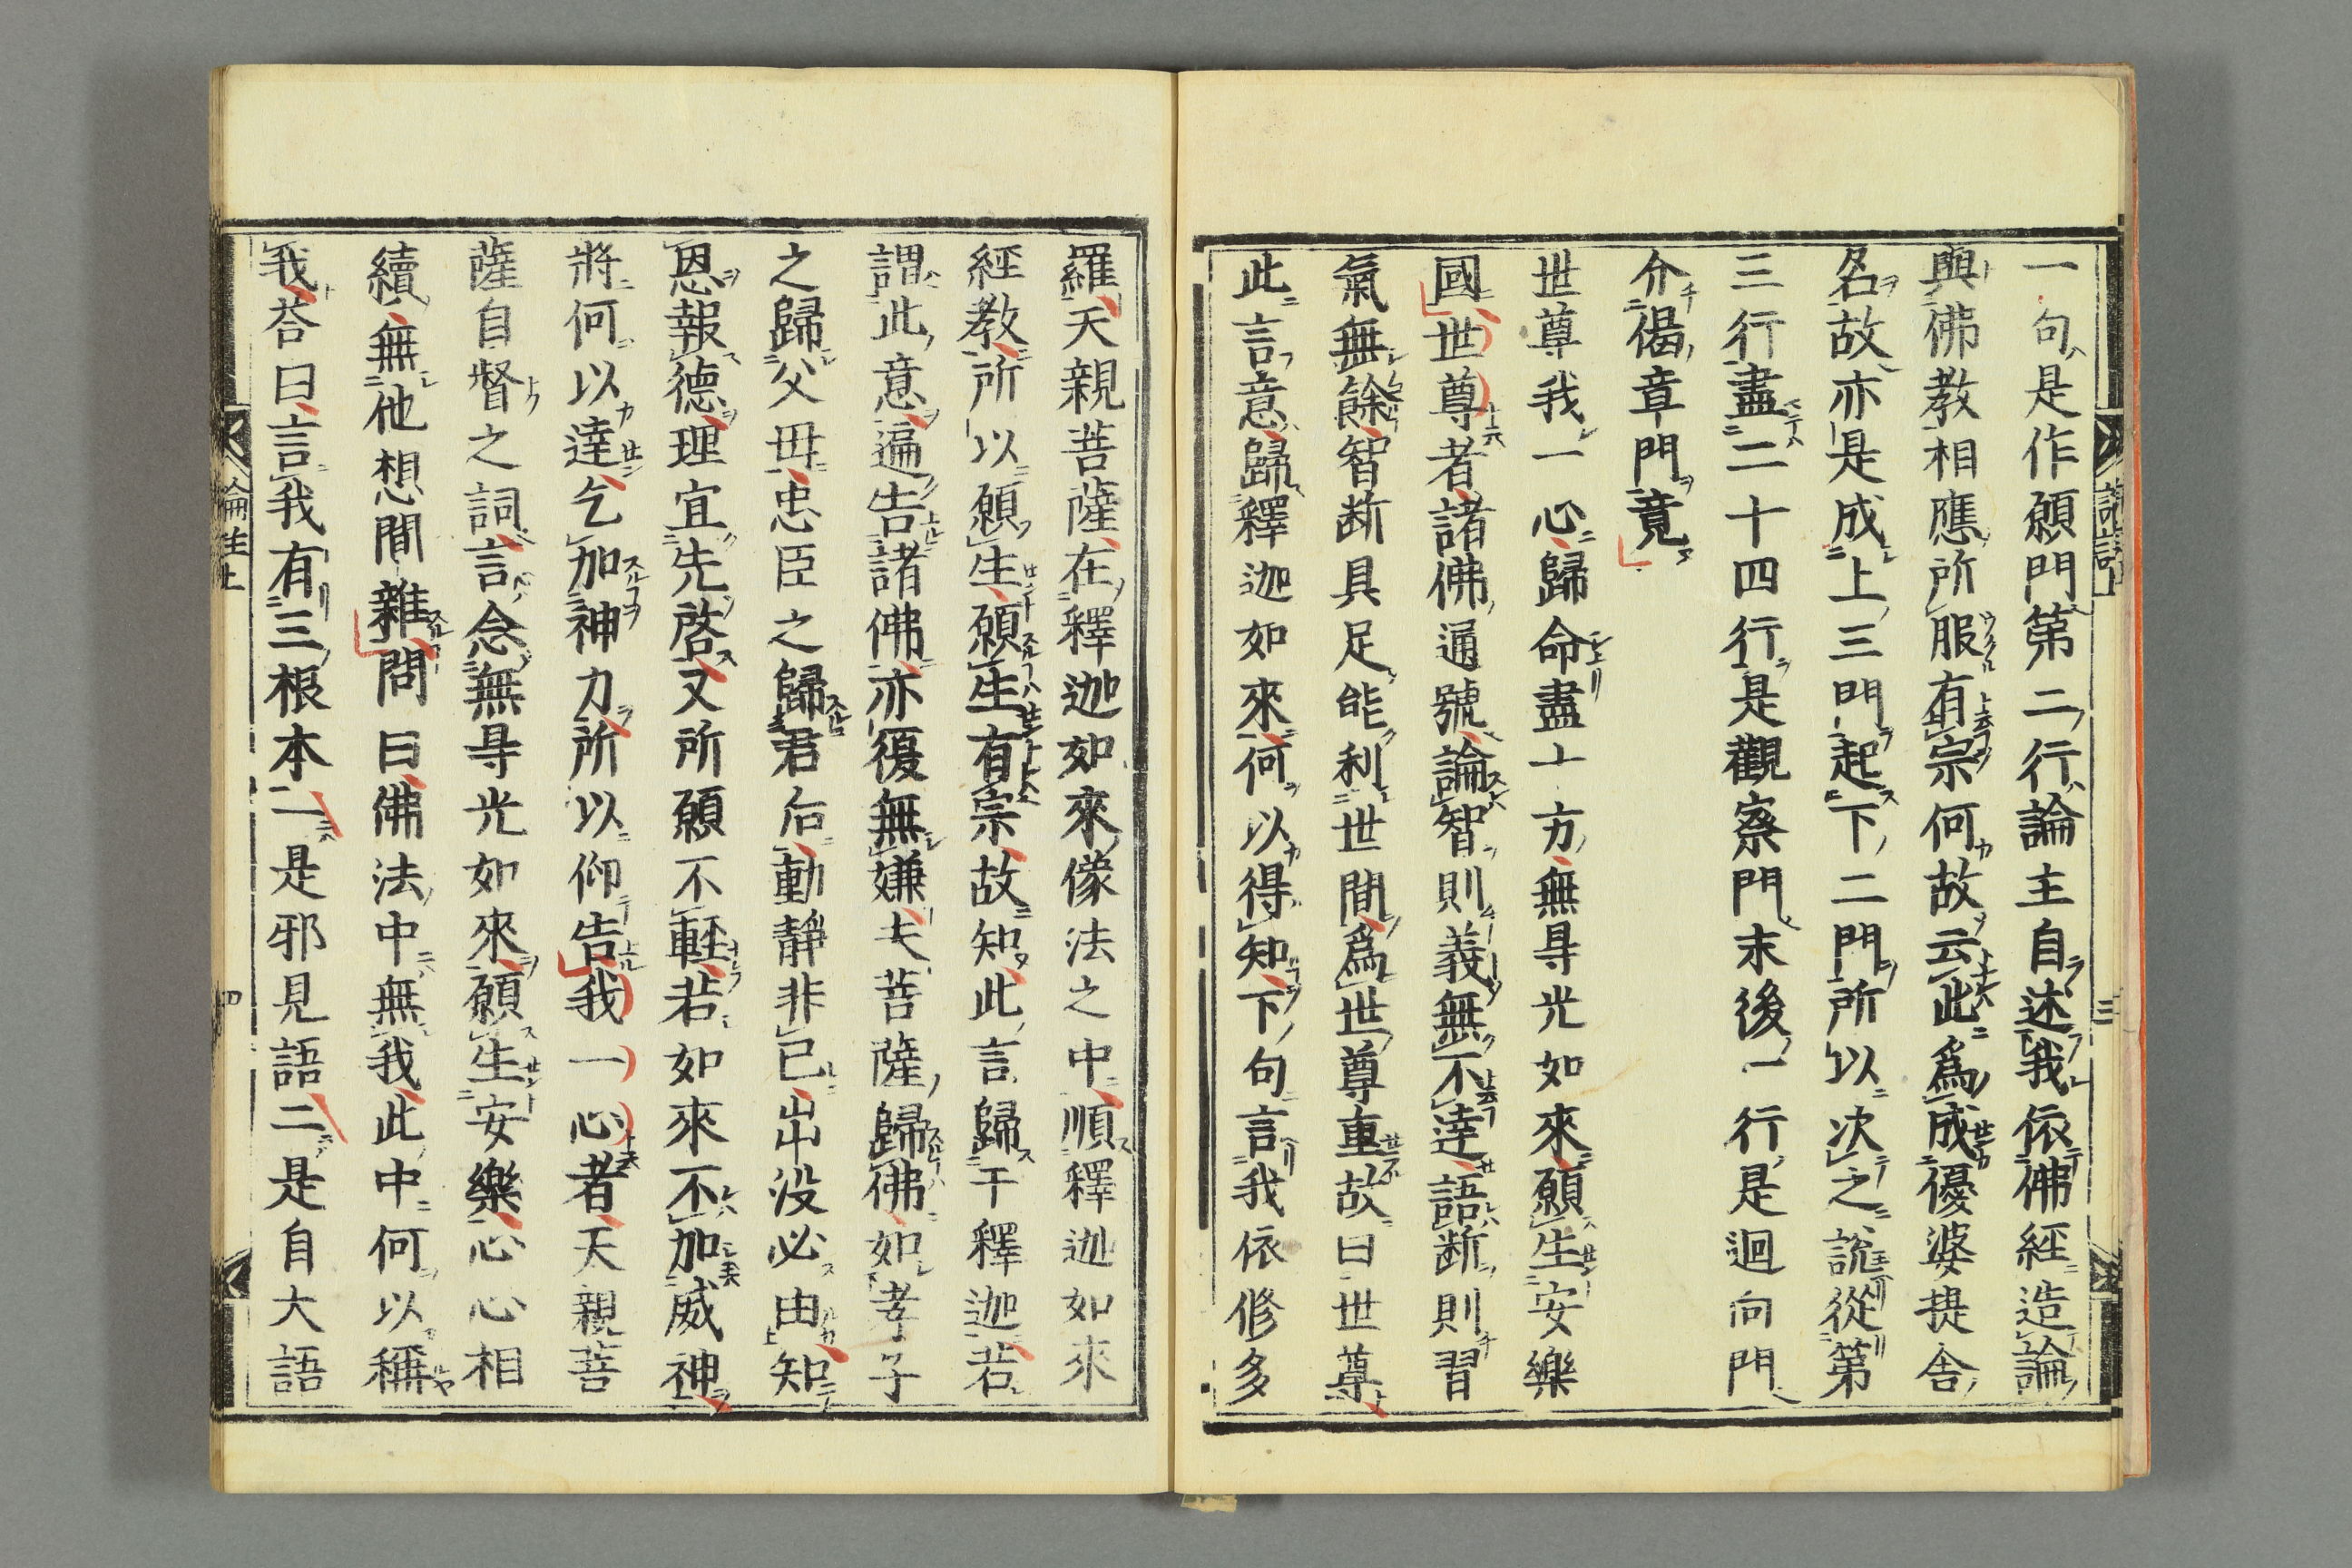 一句是作願門第二行論主自述我依佛經造論
與佛教相應所服有宗何故云此爲成優婆提舎
名故亦是成上三門起下二門所以次之說從第
三行盡二十四行是觀察門末後一行是迴向門
分偈章門竟
世尊我一心歸命盡十方無㝵光如來願生安樂
國世尊者諸佛通號論智則義無不達語断則習
氣無餘智断具足能利世間爲世尊重故曰世尊
此言意歸釋迦如來何以得知下句言我依修多
羅天親菩薩在釋迦如來像法之中順釋迦如來
經教所以願生願生有宗故知此言歸于釋迦若
謂此意遍告諸佛亦復無嫌夫菩薩歸佛如孝子
之歸父母忠臣之歸君后動静非已出没必由知
恩報德理宜先啓又所願不軽若如來不加威神
將何以達乞加神力所以仰告我一心者天親菩
薩自督之詞言念無㝵光如來願生安樂心心相
續無他想間雜問曰佛法中無我此中何以稱
我荅曰言我有三根本一是邪見語二是自大語
三
論註上
四